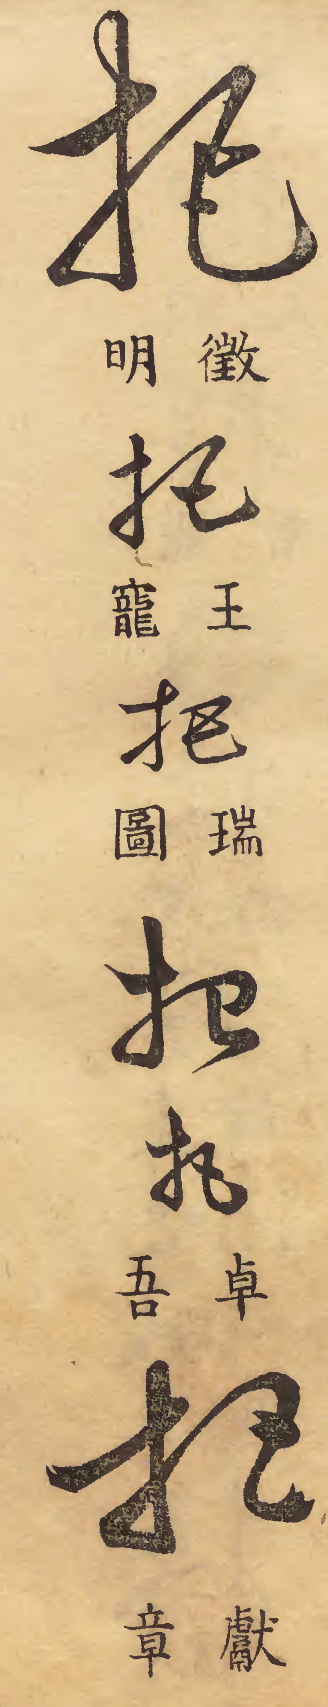 把
徵明
把
王寵
把
瑞圖
把
把
卓吾
把
獻章